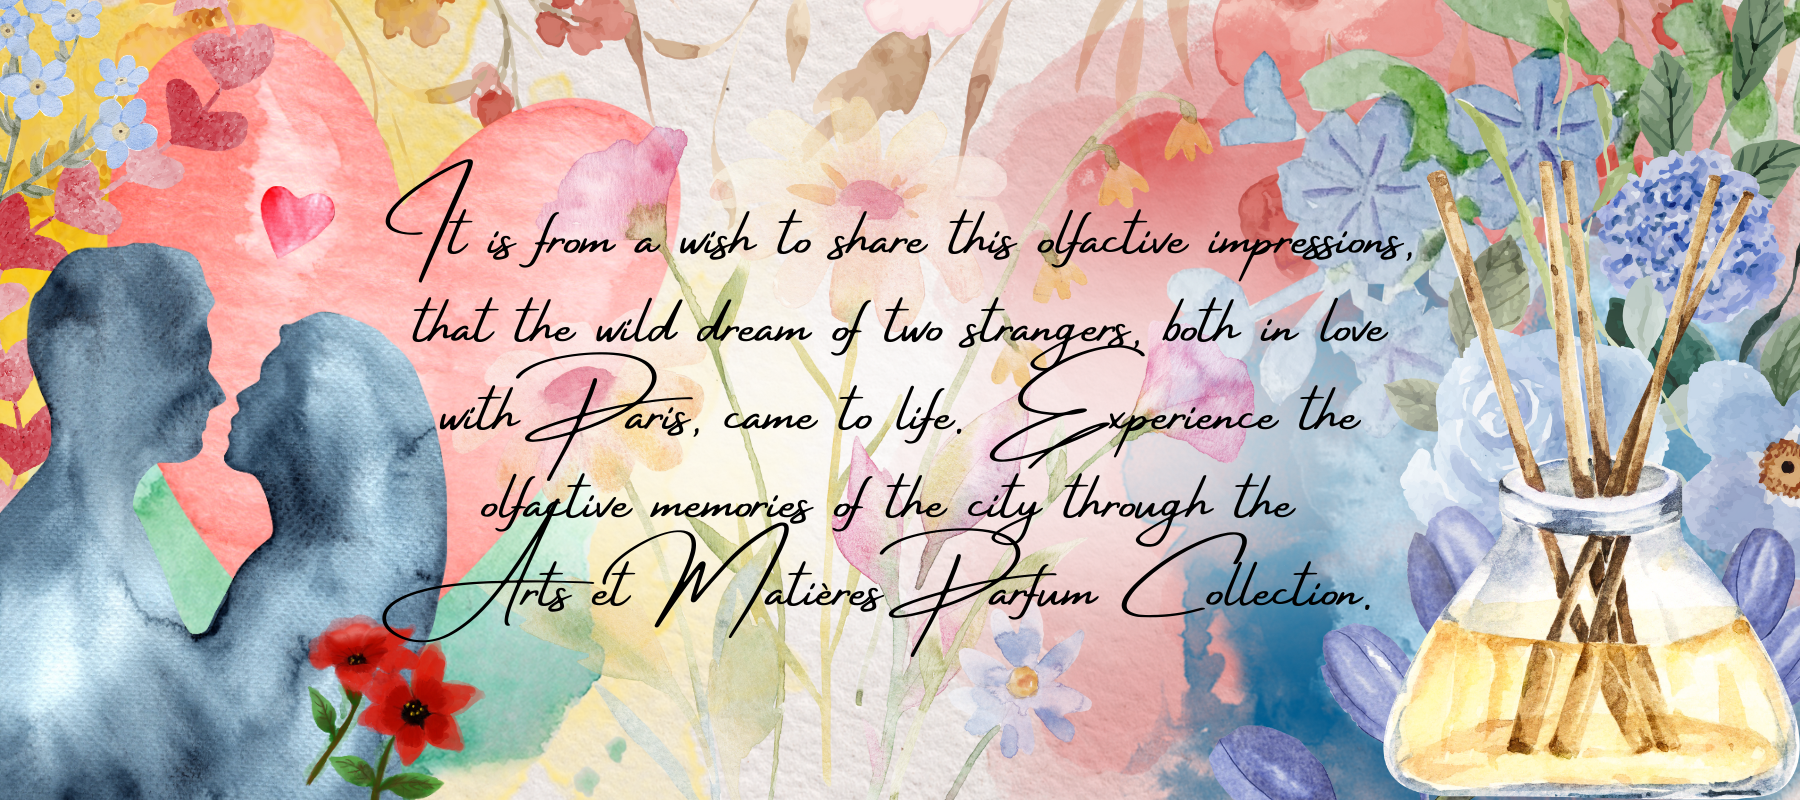 It is from a wish to share this olfactive impressions,
that the wild dream of two strangers, both in love
with Paris, came to life. Experience the
olfactive memories of the city through the
Arts et Matières Parfum Collection.